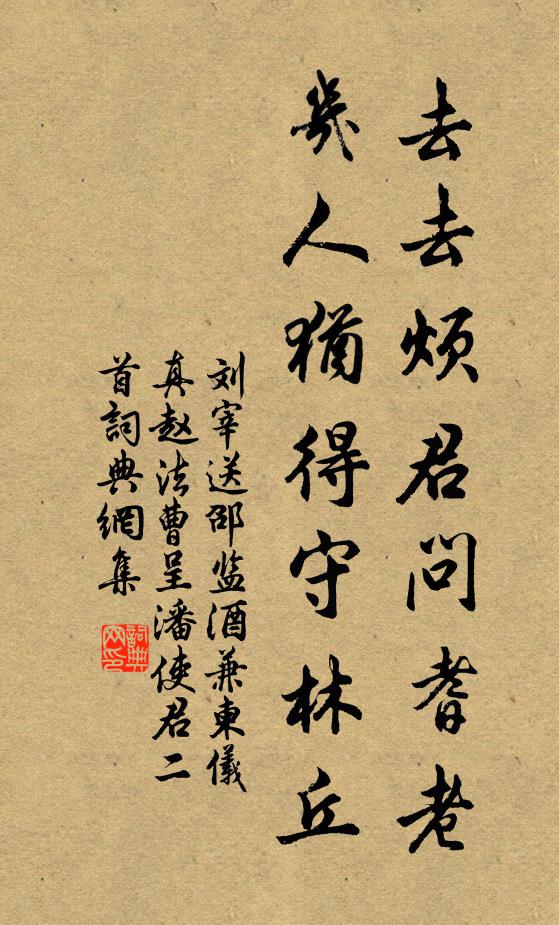 去去烦君问耆老
几人犹得守林丘
刘宰送邵监酒兼柬仪
真赵法曹呈潘使君二
首詞典網集
詞典网印